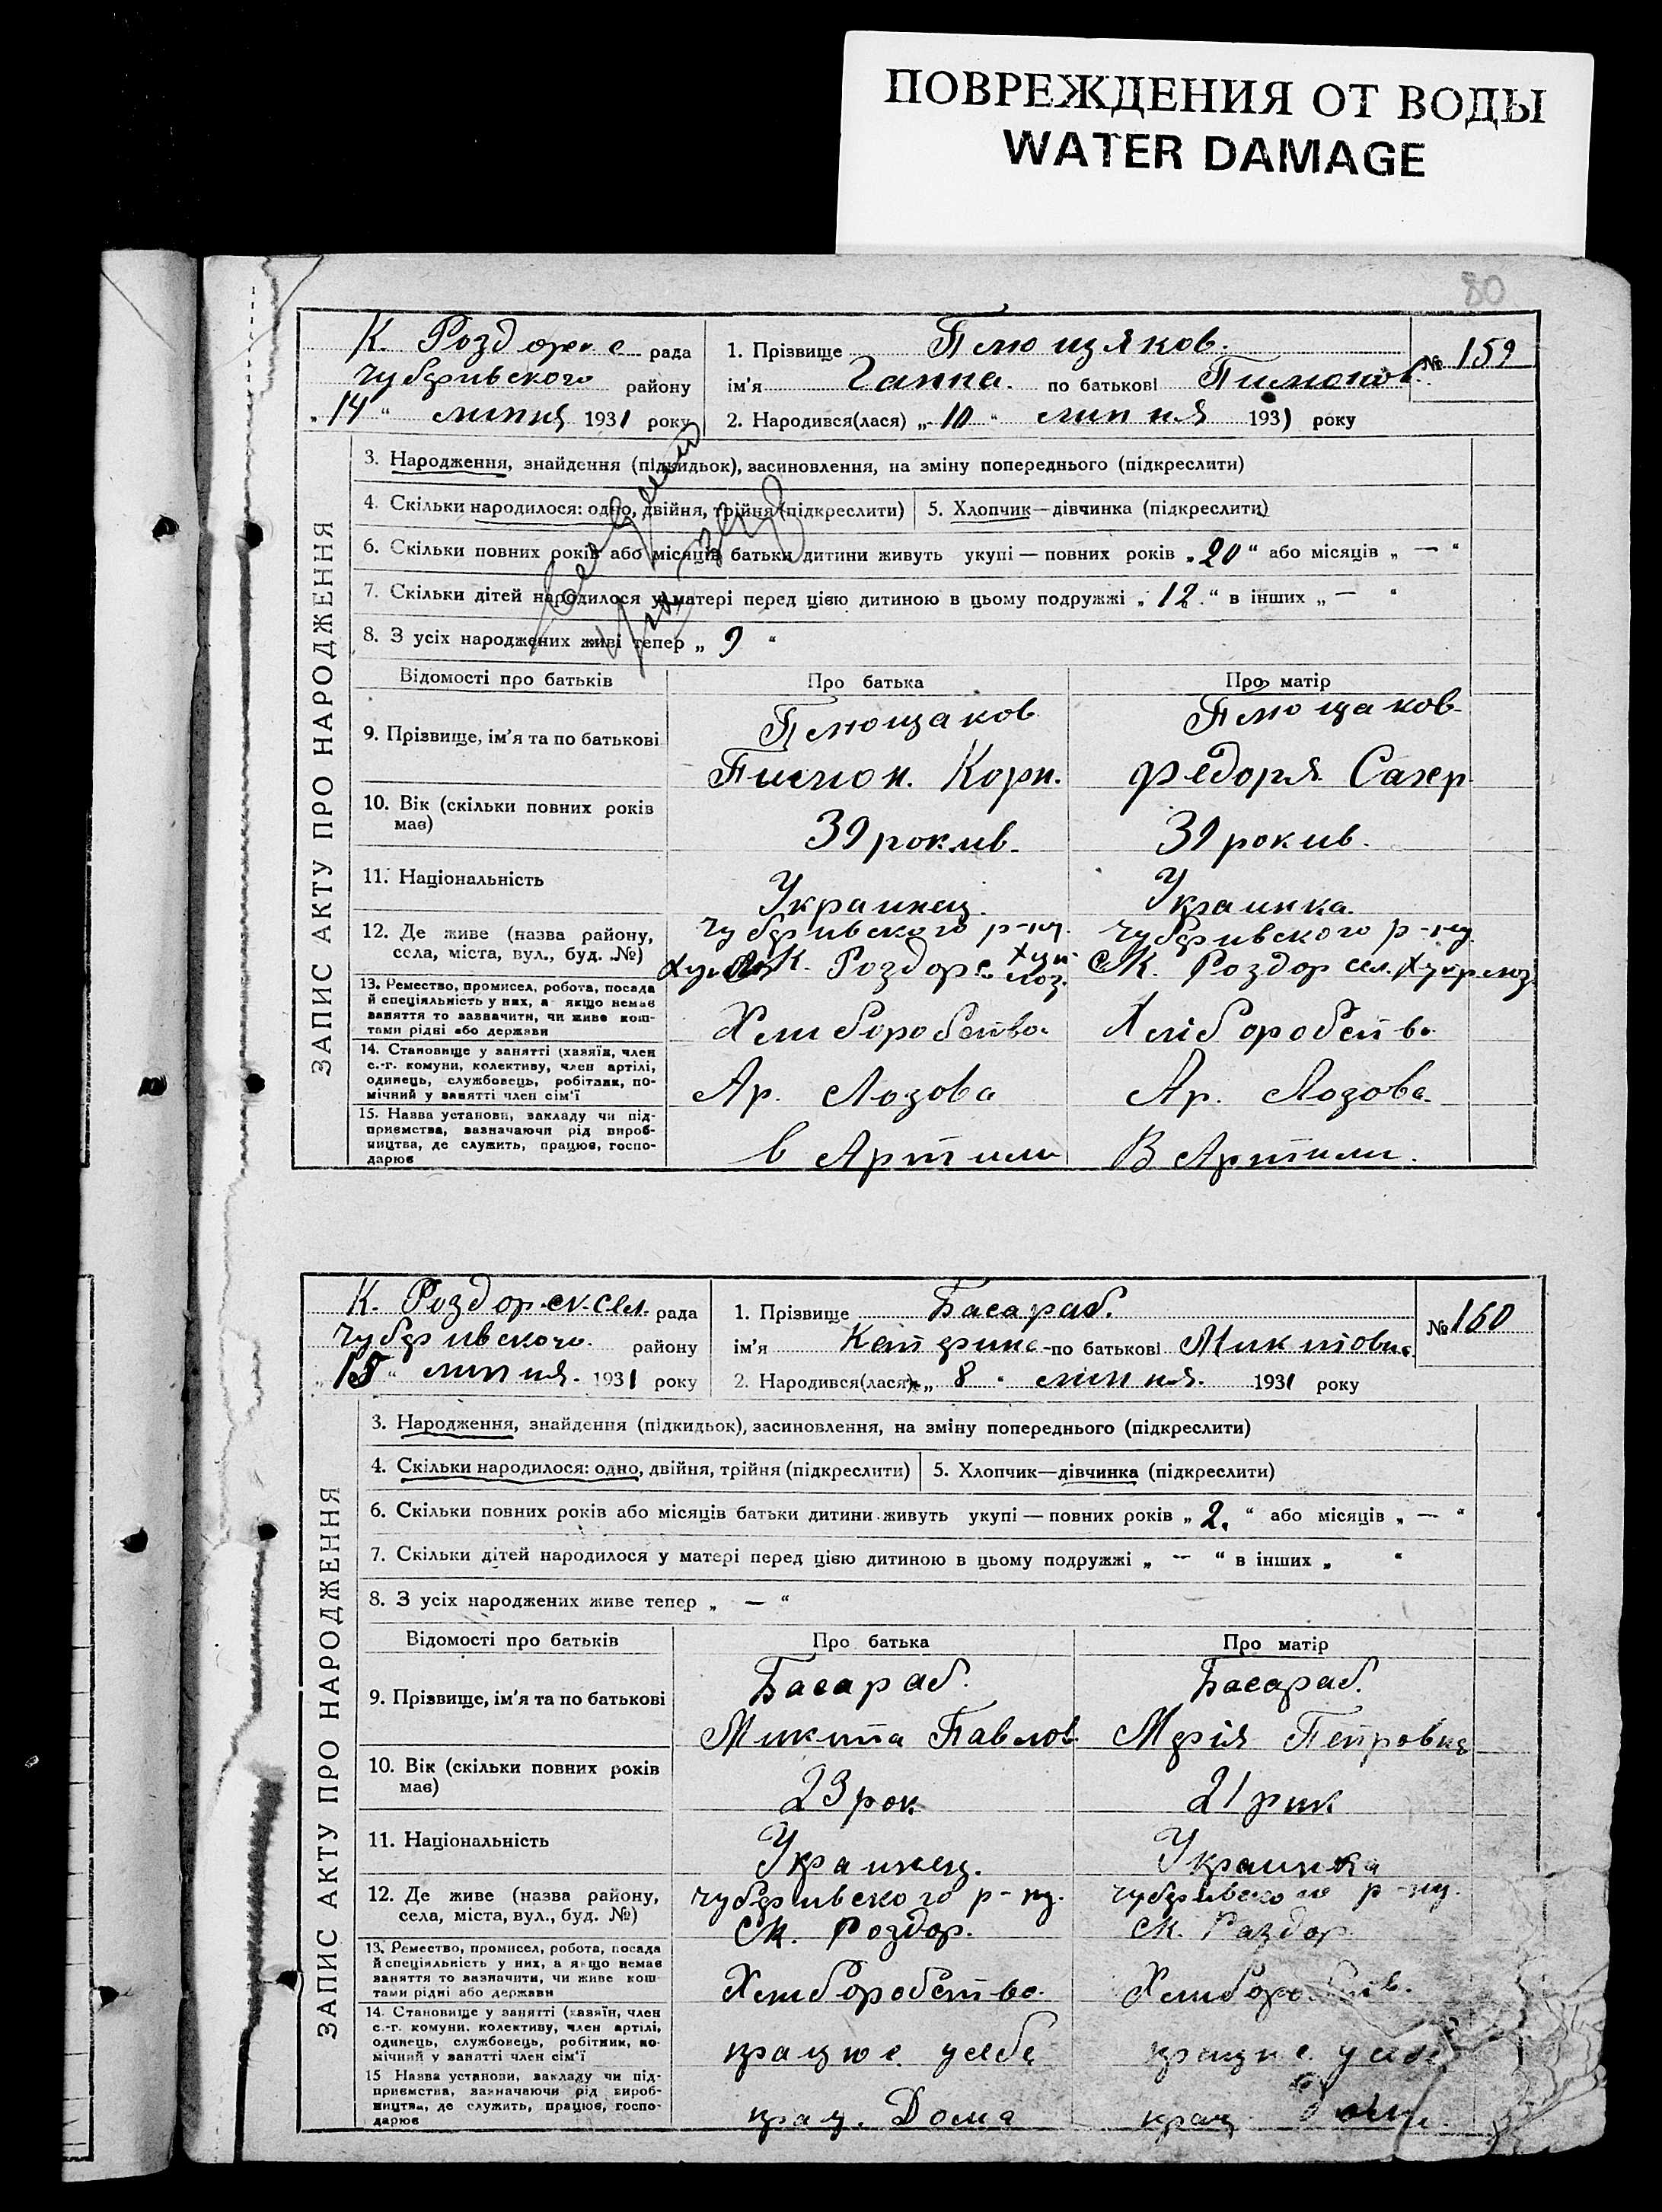 ПОВРЕЖДЕНИЯ ОТ ВОДЫ
WATER DAMAGE
80
ЗАПИС АКТУ ПРО НАРОДЖЕННЯ
К. Роздорс рада
Чубарівського району
„14“ липня 1931 року
1. Прізвище Плющяков.
ім'я Ганна. по батькові Пимонов.
№ 159
2. Народився(лася) „10“ липня 1931 року
3. Народження, знайдення (підкидьок), засиновлення, на зміну попереднього (підкреслити)
4. Скільки народилося: одно, двійня, трійня (підкреслити) 5. Хлопчик—дівчинка (підкреслити)
6. Скільки повних років або місяців батьки дитини живуть укупі — повних років „20“ або місяців „—“
7. Скільки дітей народилося у матері перед цією дитиною в цьому подружжі „12.“ в інших „—“
8. З усіх народжених живі тепер „9“
Відомості про батьків Про батька Про матір
9. Прізвище, ім'я та по батькові
Плющаков Плющаков
Пимон. Корн. Федоря Сахер
10. Вік (скільки повних років має)
39 рокив. 39 рокив.
11. Національність
Украинец. Украинка.
12. Де живе (назва району, села, міста, вул., буд. №)
Чубаривского р-ну. Чубаривского р-ну
К. Роздорс хут. лоз. СК. Роздор сел. Хутр лоз.
13. Ремество, промисел, робота, посада й спеціяльність у них, а якщо немає заняття то зазначити, чи живе коштами рідні або держави
Хлиборобство. Хліборобство
14. Становище у занятті (хазяїн, член с.-г. комуни, колективу, член артілі, одинець, службовець, робітник, помічний у занятті член сім'ї
Ар. Лозова Ар. Лозова
15. Назва установи, закладу чи підприємства, зазначаючи рід виробництва, де служить, працює, господарює
в Артили В Артили.
ЗАПИС АКТУ ПРО НАРОДЖЕННЯ
К. Роздор.ск.сел. рада
Чубаривського району
„15“ липня. 1931 року
1. Прізвище Басараб.
ім'я Катфина по батькові Микитовна
№ 160
2. Народився(лася) „8“ липня. 1931 року
3. Народження, знайдення (підкидьок), засиновлення, на зміну попереднього (підкреслити)
4. Скільки народилося: одно, двійня, трійня (підкреслити) 5. Хлопчик—дівчинка (підкреслити)
6. Скільки повних років або місяців батьки дитини живуть укупі — повних років „2.“ або місяців „—“
7. Скільки дітей народилося у матері перед цією дитиною в цьому подружжі „—“ в інших „ “
8. З усіх народжених живе тепер „—“
Відомості про батьків Про батька Про матір
9. Прізвище, ім'я та по батькові
Басараб. Басараб.
Микита Павлов. Марія Петровна
10. Вік (скільки повних років має)
23 рок 21 рик
11. Національність
Украинец. Украинка
12. Де живе (назва району, села, міста, вул., буд. №)
Чубаривского р-ну. Чубаривского р-ну.
СК. Роздор. СК. Раздор.
13. Ремество, промисел, робота, посада й спеціяльність у них, а якщо немає заняття то зазначити, чи живе коштами рідні або держави
Хлиборобство.
14. Становище у занятті (хазяїн, член с.-г. комуни, колективу, член артілі, одинець, службовець, робітник, помічний у занятті член сім'ї
працює у себе працює у себе
15 Назва установи, закладу чи підприємства, зазначаючи рід виробництва, де служить, працює, господарює
прац. Дома прац. Дома.